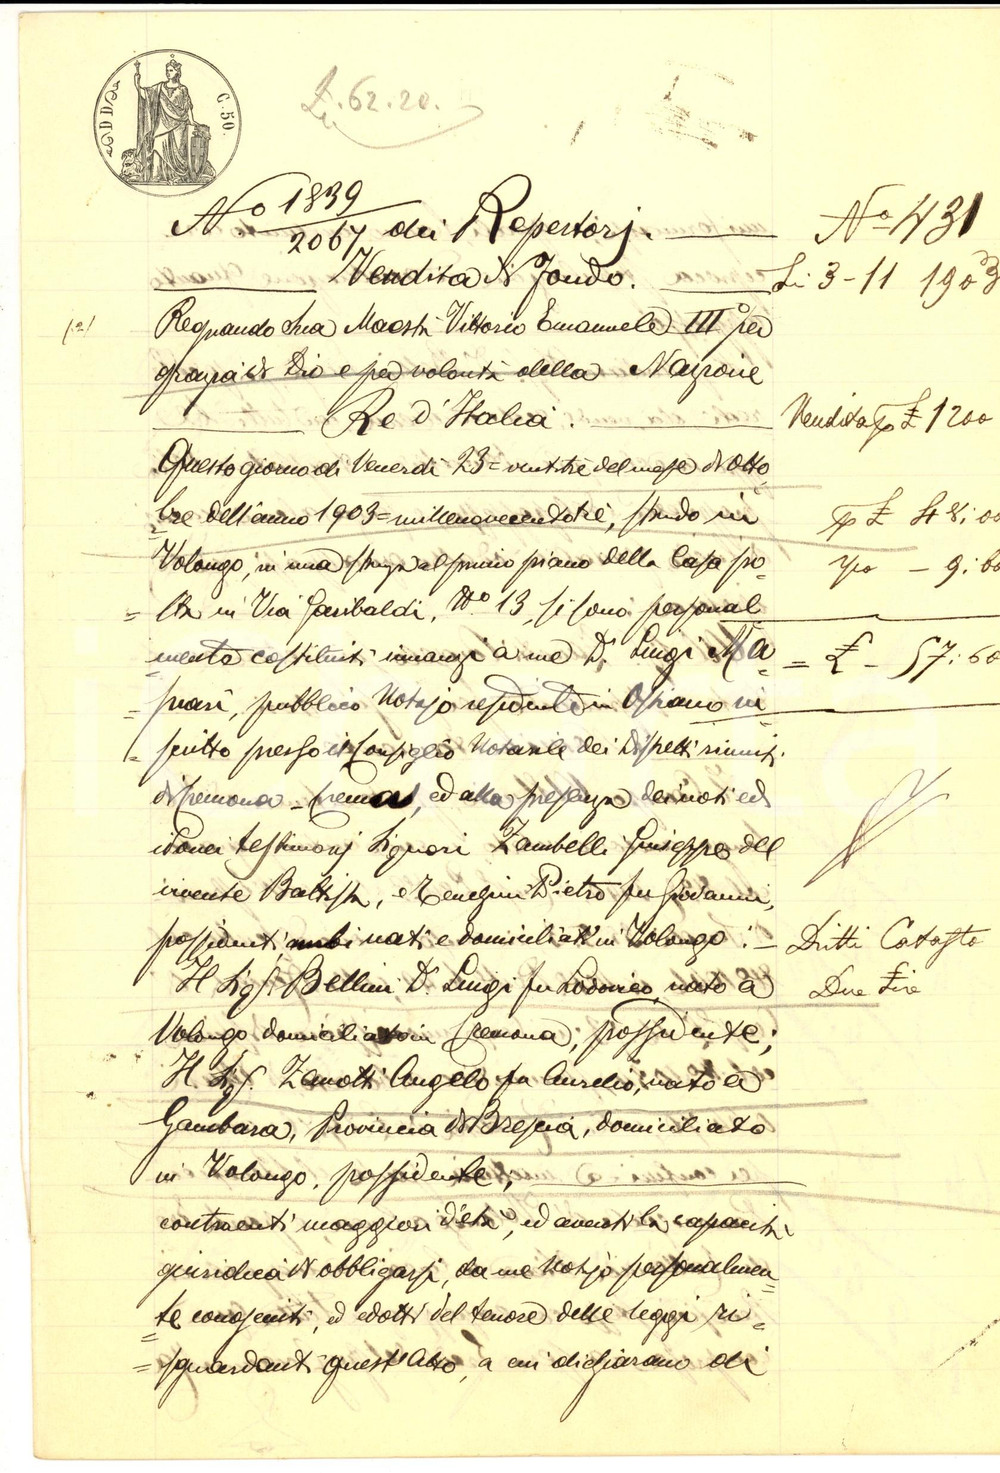 C. 50.
£. 62.20.
N.° 1839/2067 dei Repertorj.
Vendita di Fondo.
(2)
Regnando Sua Maestà Vittorio Emanuele III° per
grazia di Dio e per volontà della Nazione
Re d'Italia.
Questo giorno di Venerdì 23= ventitrè del mese di Otto-
bre dell'anno 1903= millenovecentotrè, stando in
Volongo, in una stanza al primo piano della Casa po-
=sta in Via Garibaldi, N.° 13, si sono personal
mente costituiti innanzi a me D.r Luigi Ma=
=snari, pubblico Notajo residente in Ostiano in
=scritto presso il Consiglio Notarile dei Distretti riuniti
di Cremona - Crema, ed alla presenza dei noti ed
idonei testimonj Signori Zambelli Giuseppe del
vivente Battista, e Pietro fu Giovanni,
possidenti, ambi nati e domiciliati in Volongo: -
Il Sig.r Bellini D.r Luigi fu Lodovico, nato a
Volongo domiciliato in Cremona, possidente;
Il Sig.r Zanotti Angelo fu Aurelio, nato a
Gambara, Provincia di Brescia, domiciliato
in Volongo, possidente,
contraenti maggiori d'età, ed aventi la capacità
giuridica di obbligarsi, da me Notajo personalmen=
te conosciuti, ed edotti del tenore delle leggi ri=
=sguardanti quest'Atto, a cui dichiarano di
N.° 431
Li 3-11 1903
Vendita £ 1200
£ 48:00
- 9:60
= £ - 57:60
Dritti Catasto
Due Lire